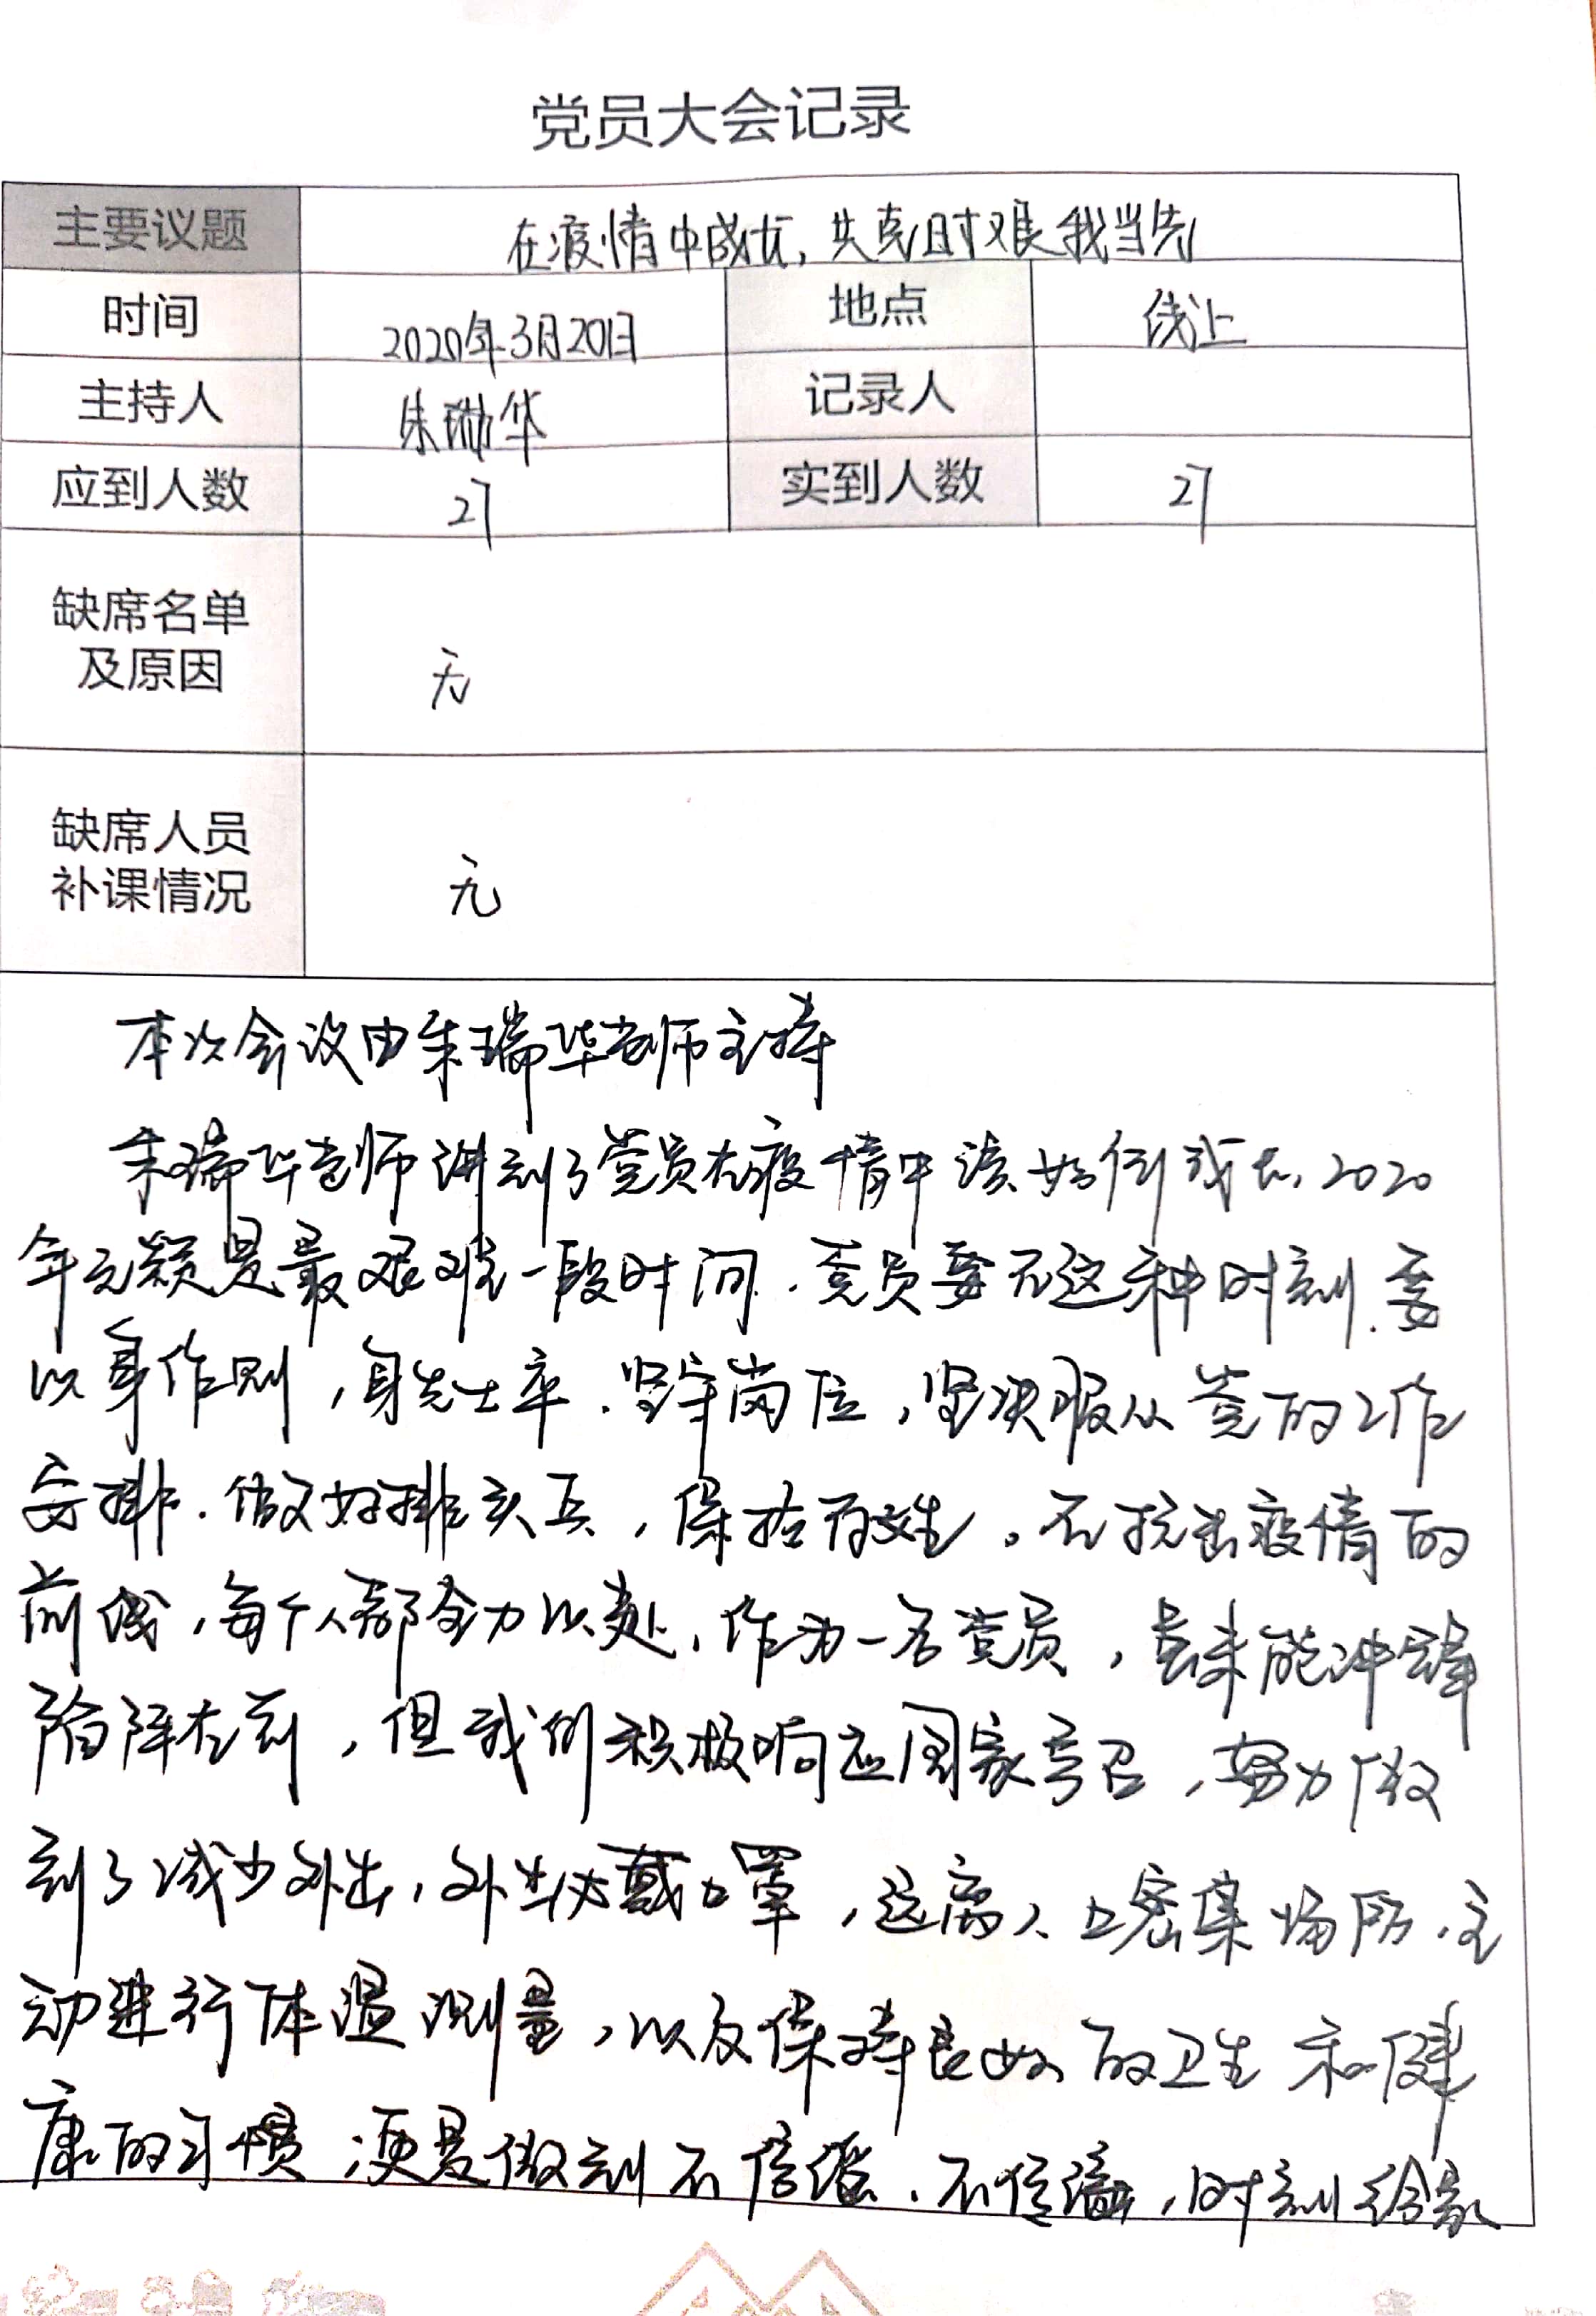 党员大会记录
主要议题 在疫情中成长,共克时艰我当先
时间 2020年3月20日 地点 线上
主持人 朱瑞华 记录人
应到人数 27 实到人数 27
缺席名单
及原因 无
缺席人员
补课情况 无
本次会议由朱瑞华老师主持
朱瑞华老师讲到了党员在疫情中该如何成长,2020
年无疑是最艰难一段时间.党员要在这种时刻.要
以身作则,身先士卒.坚守岗位,坚决服从党的工作
安排.做好排头兵,保护百姓。在抗击疫情的
前线,每个人都全力以赴,作为一名党员,虽未能冲锋
陷阵在前,但我们积极响应国家号召,努力做
到了减少外出,外出必戴口罩,远离人口密集场所,主
动进行体温测量,以及保持良好的卫生和健
康的习惯 更是做到不信谣.不传谣,时刻给家